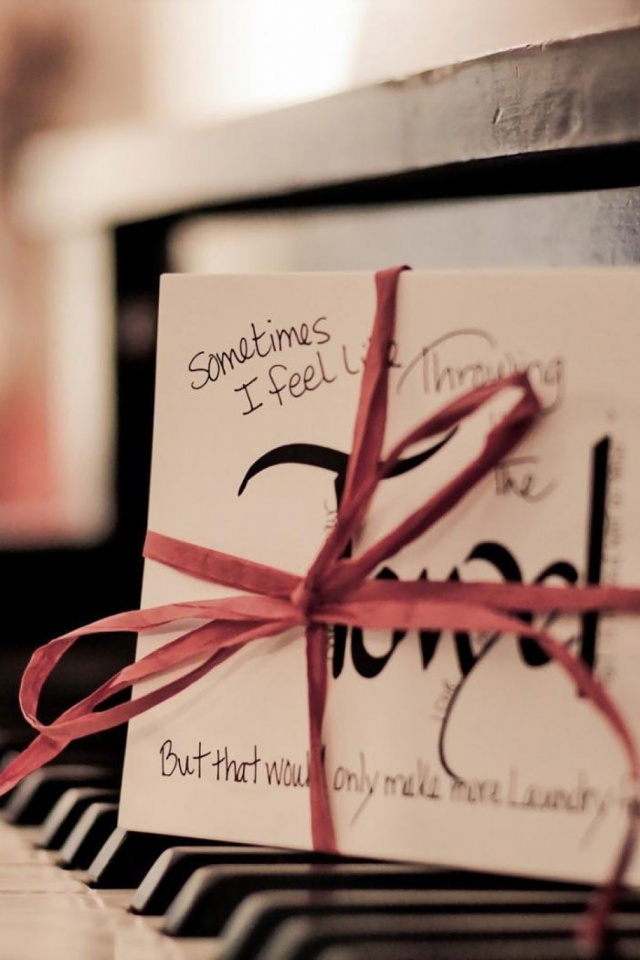 Sometimes
I feel Like Throwing
The
Towel
But that would only make more Laundry